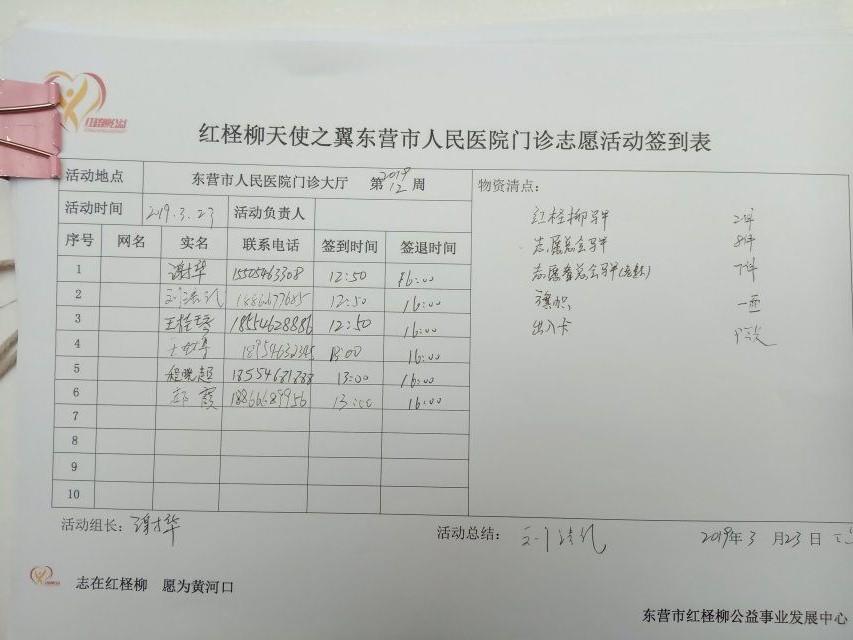 红柽柳公益
红柽柳天使之翼东营市人民医院门诊志愿活动签到表
活动地点 东营市人民医院门诊大厅 第2019 12周 物资清点：
活动时间 2019.3.23 活动负责人
红柽柳马甲 2件
序号 网名 实名 联系电话 签到时间 签退时间
志愿总会马甲 8件
1 谢才华 12:50 16:00
7件
2 12:50 16:00
旗帜 一面
3 18554628886 12:50 16:00
出入卡
4 13:00 16:00
5 程晓超 13:00 16:00
6 郭霞 18866689956 13:00 16:00
7
8
9
10
活动组长：谢才华 活动总结： 2019年3月23日
志在红柽柳 愿为黄河口
东营市红柽柳公益事业发展中心